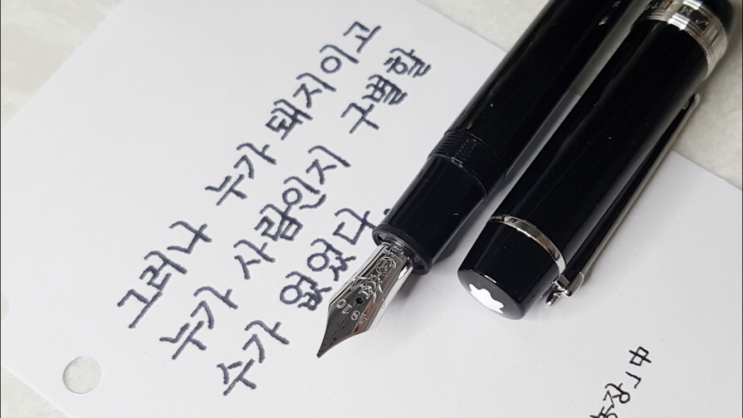 그러나 누가 돼지이고
누가 사람인지 구별할
수가 없었다.